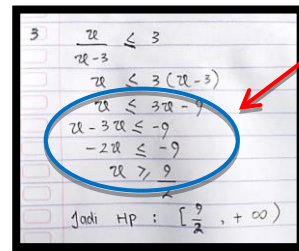 3 x/x-3 ≤ 3
x ≤ 3(x-3)
x ≤ 3x - 9
x - 3x ≤ -9
-2x ≤ -9
x ≥ 9/2
Jadi HP : [9/2, +∞)